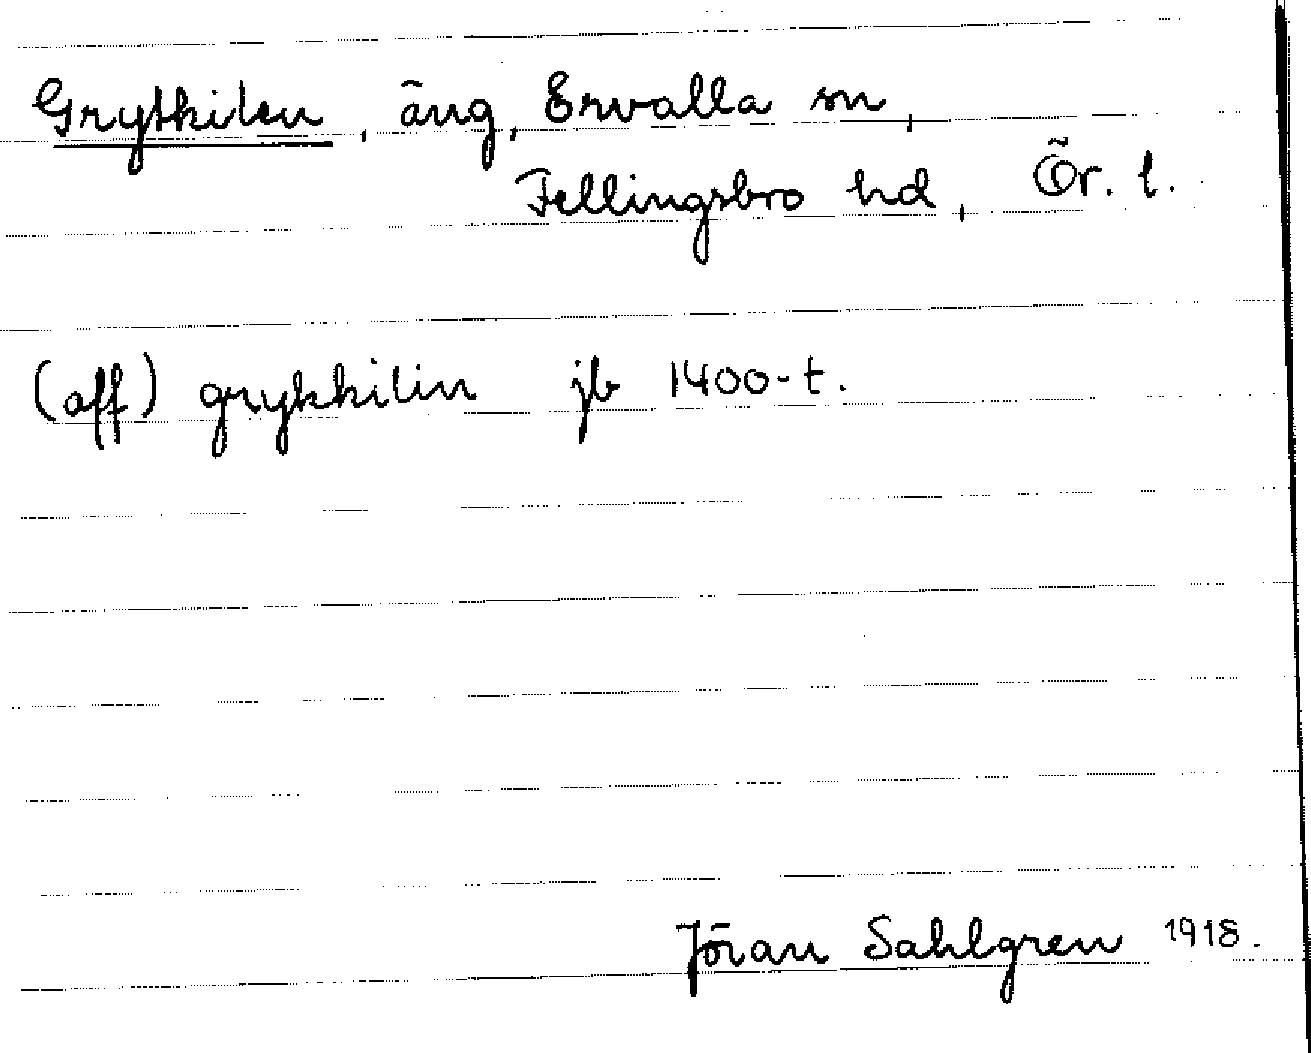 Grytkilen, äng, Ervalla sn,
Fellingsbro hd, Ör. l.
(aff) grykkilin jb 1400-t.
Jöran Sahlgren 1918.